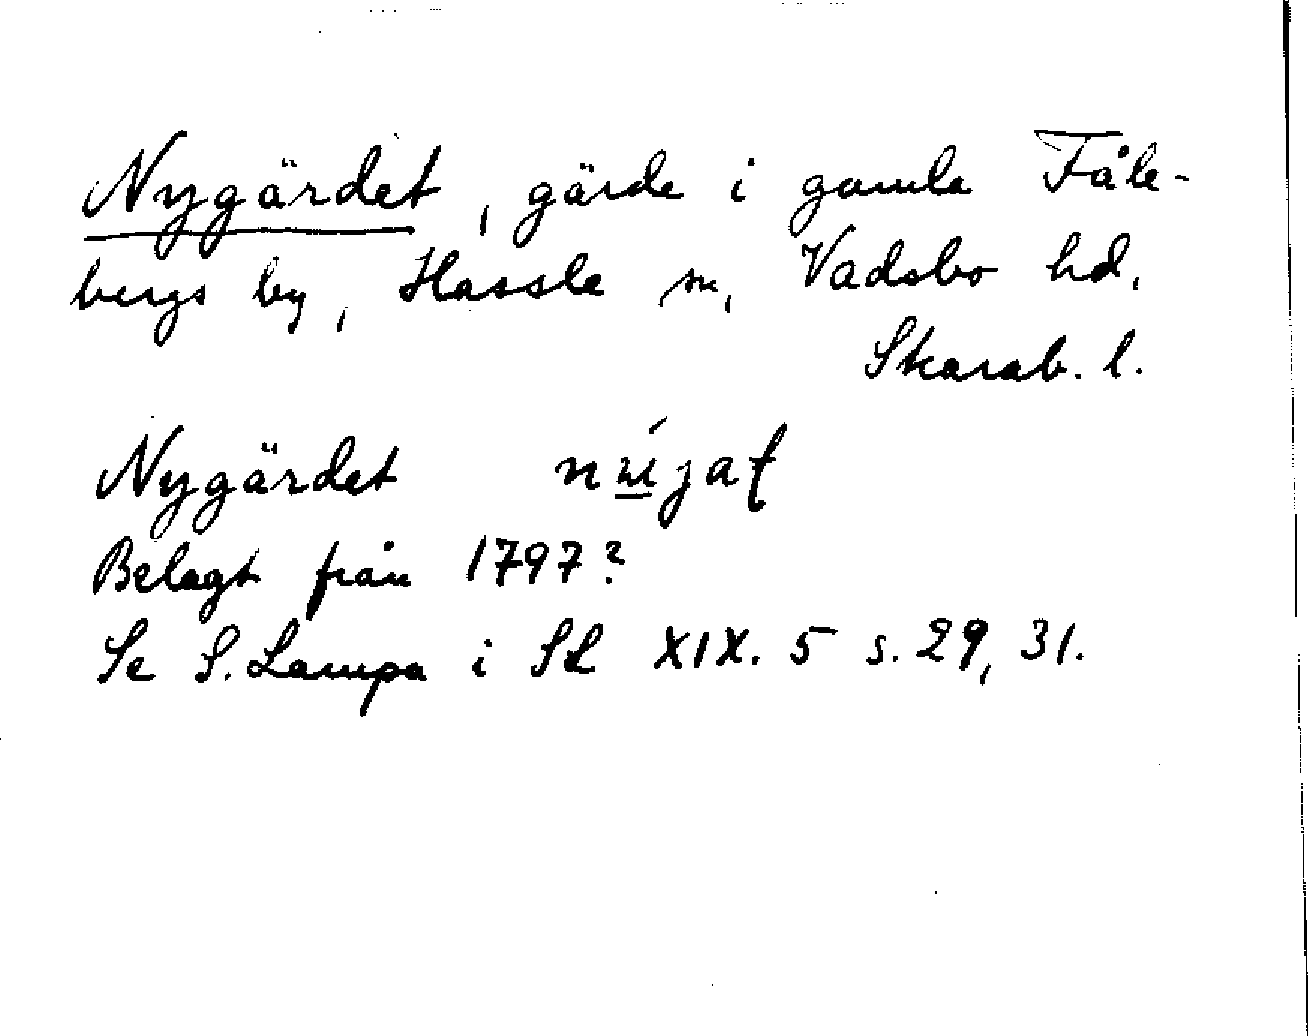 Nygärdet, gärde i gamla Fåle-
bergs by, Hassle sn, Vadsbo hd,
Skarab. l.
Nygärdet
Belagt från 1797?
Se S. Lampa i SL XIX. 5 s. 29, 31.